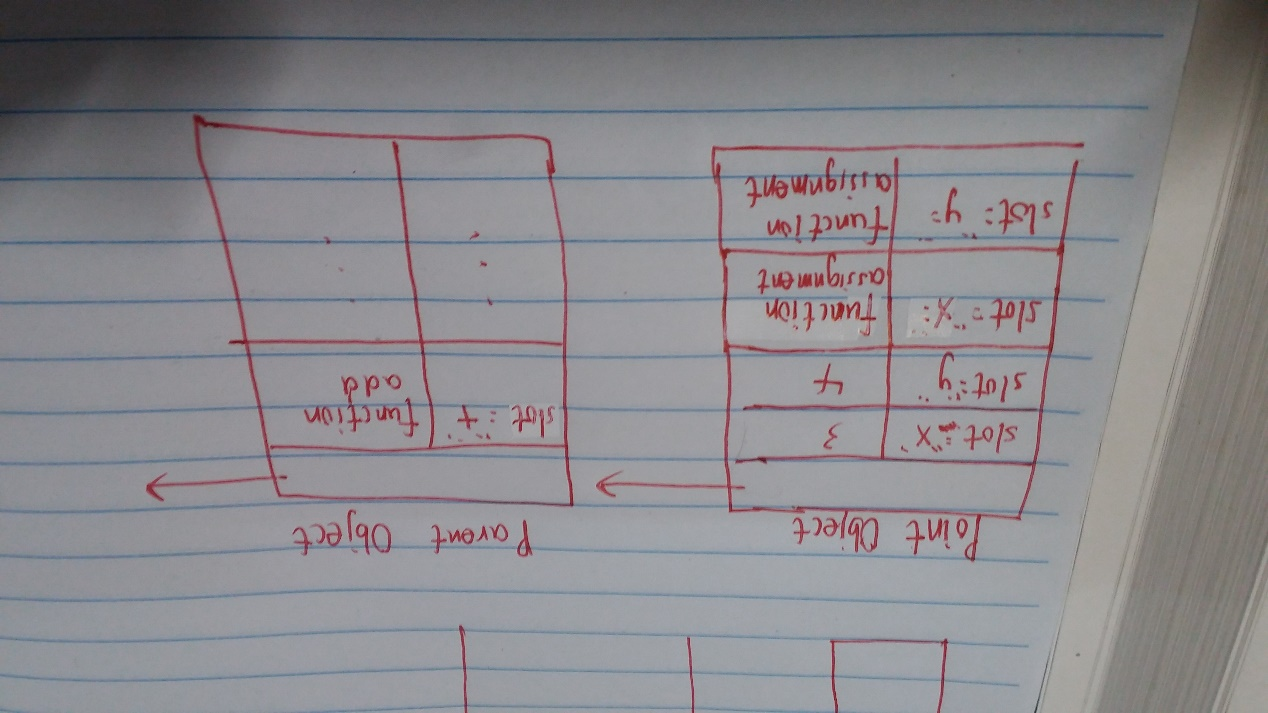 Point Object
slot="x" 3
slot="y" 4
slot="x:" function
assignment
slot="y=" function
assignment
Parent Object
slot="+" function
add